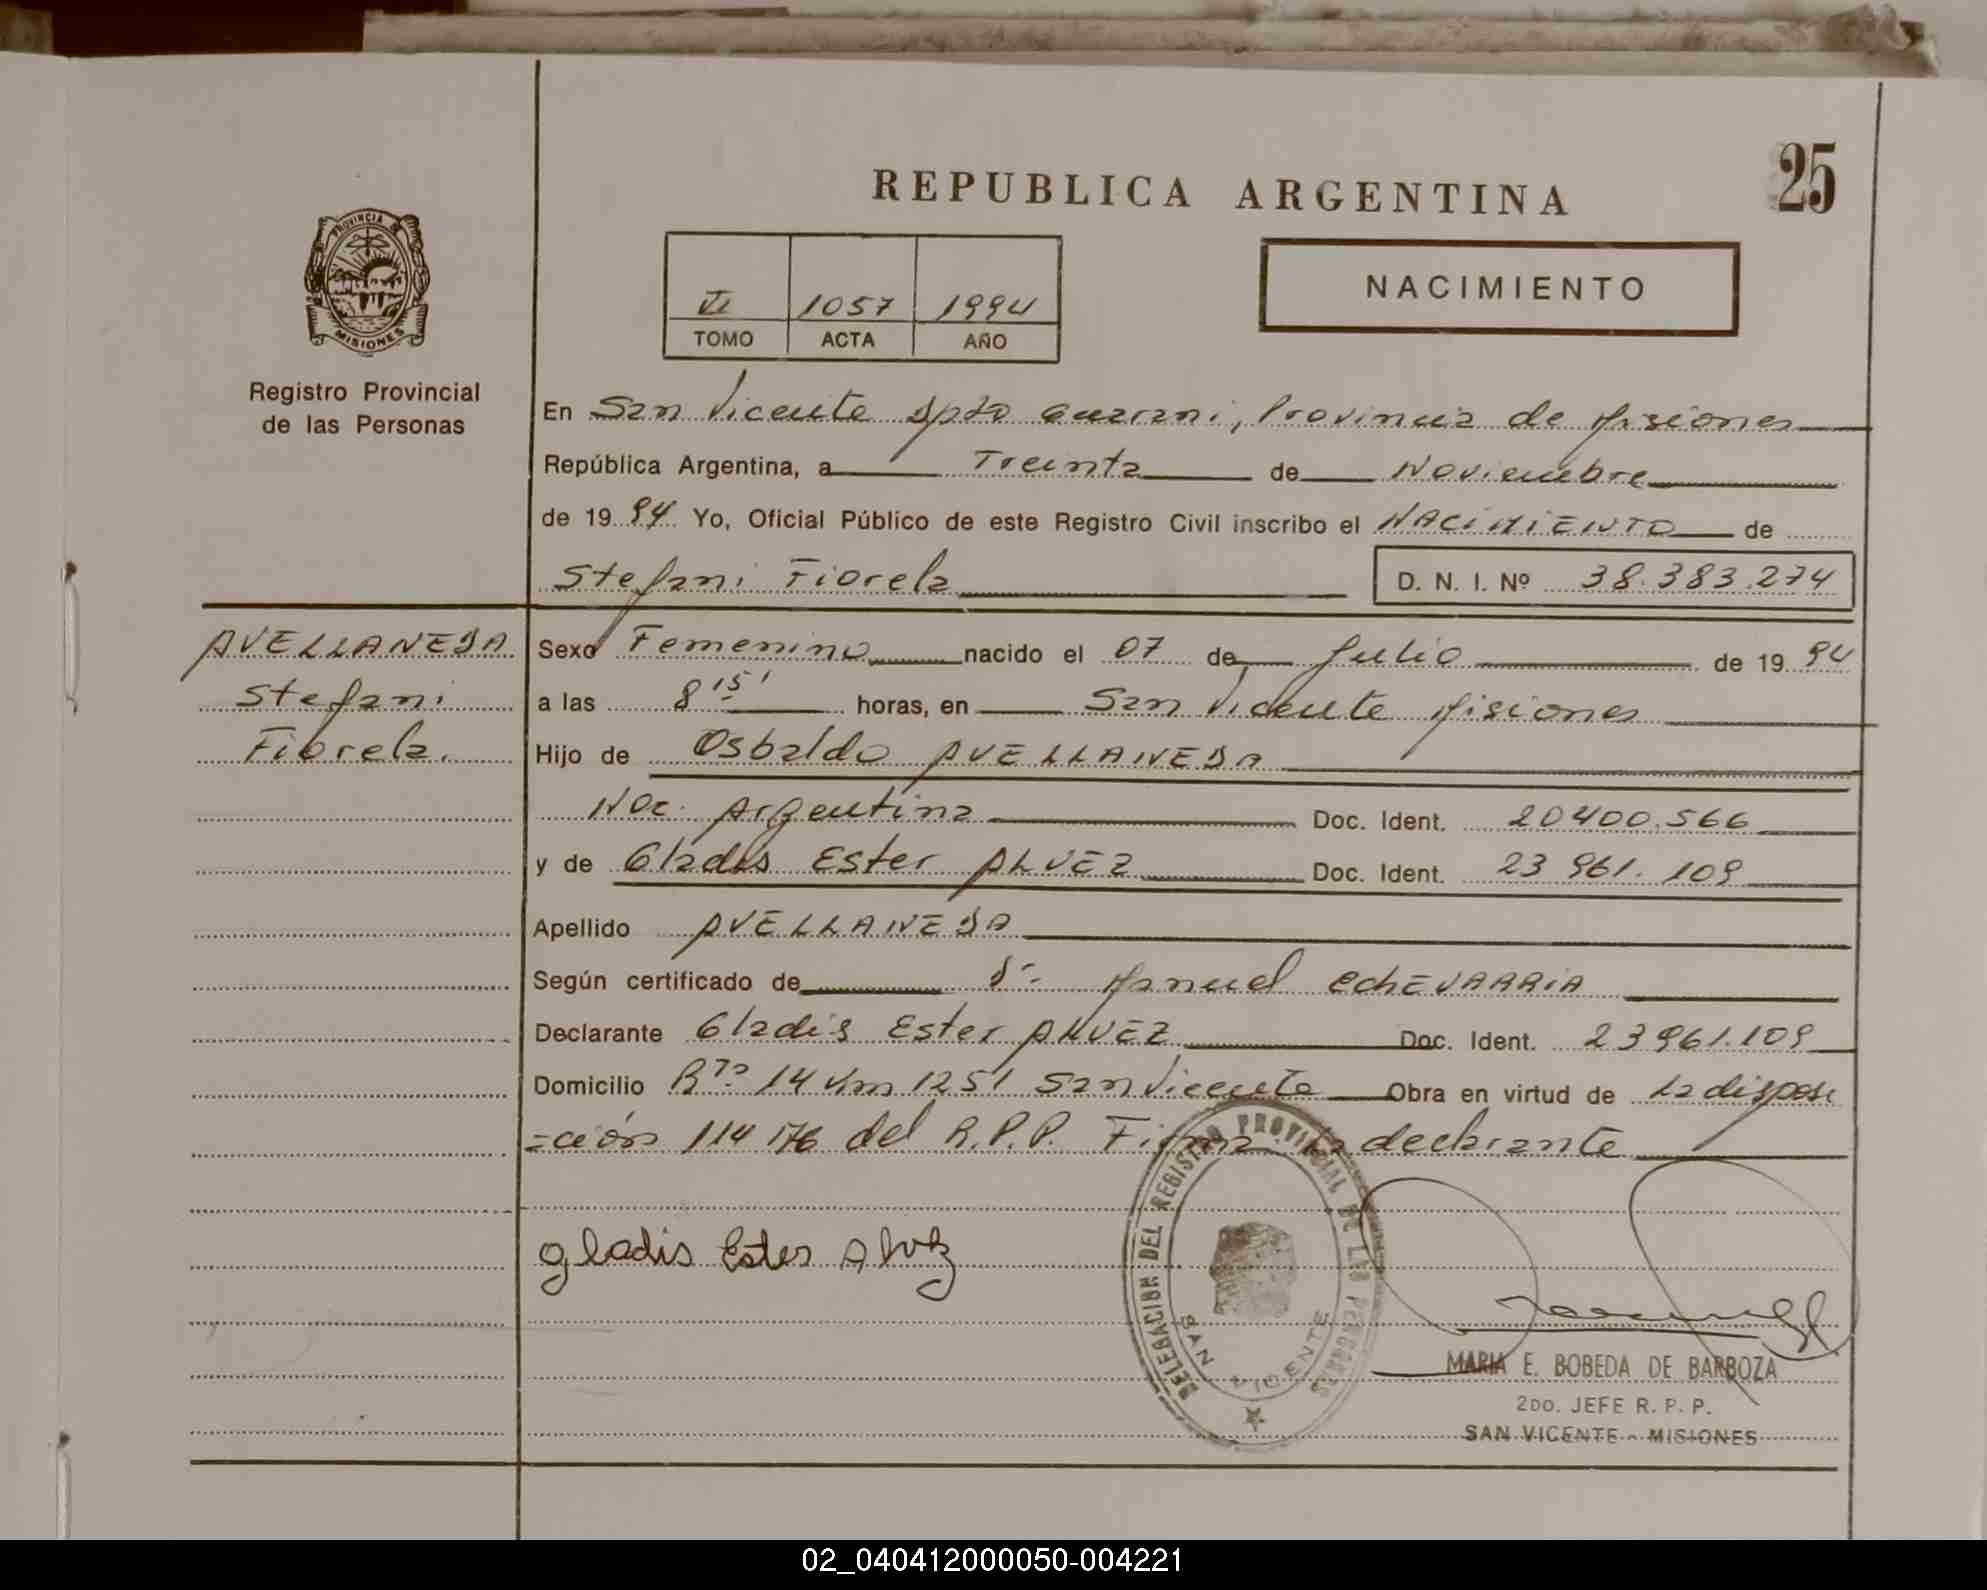 REPUBLICA ARGENTINA
25
PROVINCIA DE
MISIONES
Registro Provincial
de las Personas
VI 1057 1994
TOMO ACTA AÑO
NACIMIENTO
En San Vicente Dpto Guarani, Provincia de Misiones
República Argentina, a Treinta de Noviembre
de 1994 Yo, Oficial Público de este Registro Civil inscribo el NACIMIENTO de
Stefani Fiorela D. N. I. Nº 38.383.274
AVELLANEDA
Stefani
Fiorela.
Sexo Femenino nacido el 07 de Julio de 1994
a las 8'15' horas, en San Vicente Misiones
Hijo de Osbaldo AVELLANEDA
Nac. Argentina Doc. Ident. 20400.566
y de Gladis Ester ALVEZ Doc. Ident. 23 961.109
Apellido AVELLANEDA
Según certificado de Dr. Manuel EchEVARRIA
Declarante Gladis Ester ALVEZ Doc. Ident. 23961.109
Domicilio Rta 14 Km 1251 San Vicente Obra en virtud de La disposi
=ción 114 176 del R.P.P. Firma la declarante
gladis Ester Alvez
DELEGACION DEL REGISTRO PROVINCIAL DE LAS PERSONAS
SAN VICENTE
MARIA E. BOBEDA DE BARBOZA
2DO. JEFE R. P. P.
SAN VICENTE - MISIONES
02_040412000050-004221